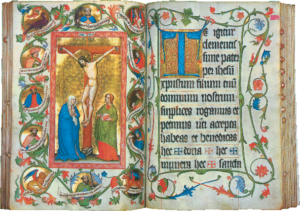 Te igitur
clementis
sime pater
per ihesū
xpistum filium tuū
dominum nostrum
supplices rogamus et
petimus uti accepta
habeas et benedicas
hec ✠ dona ✠ hec ✠
munera hec ✠ sancta